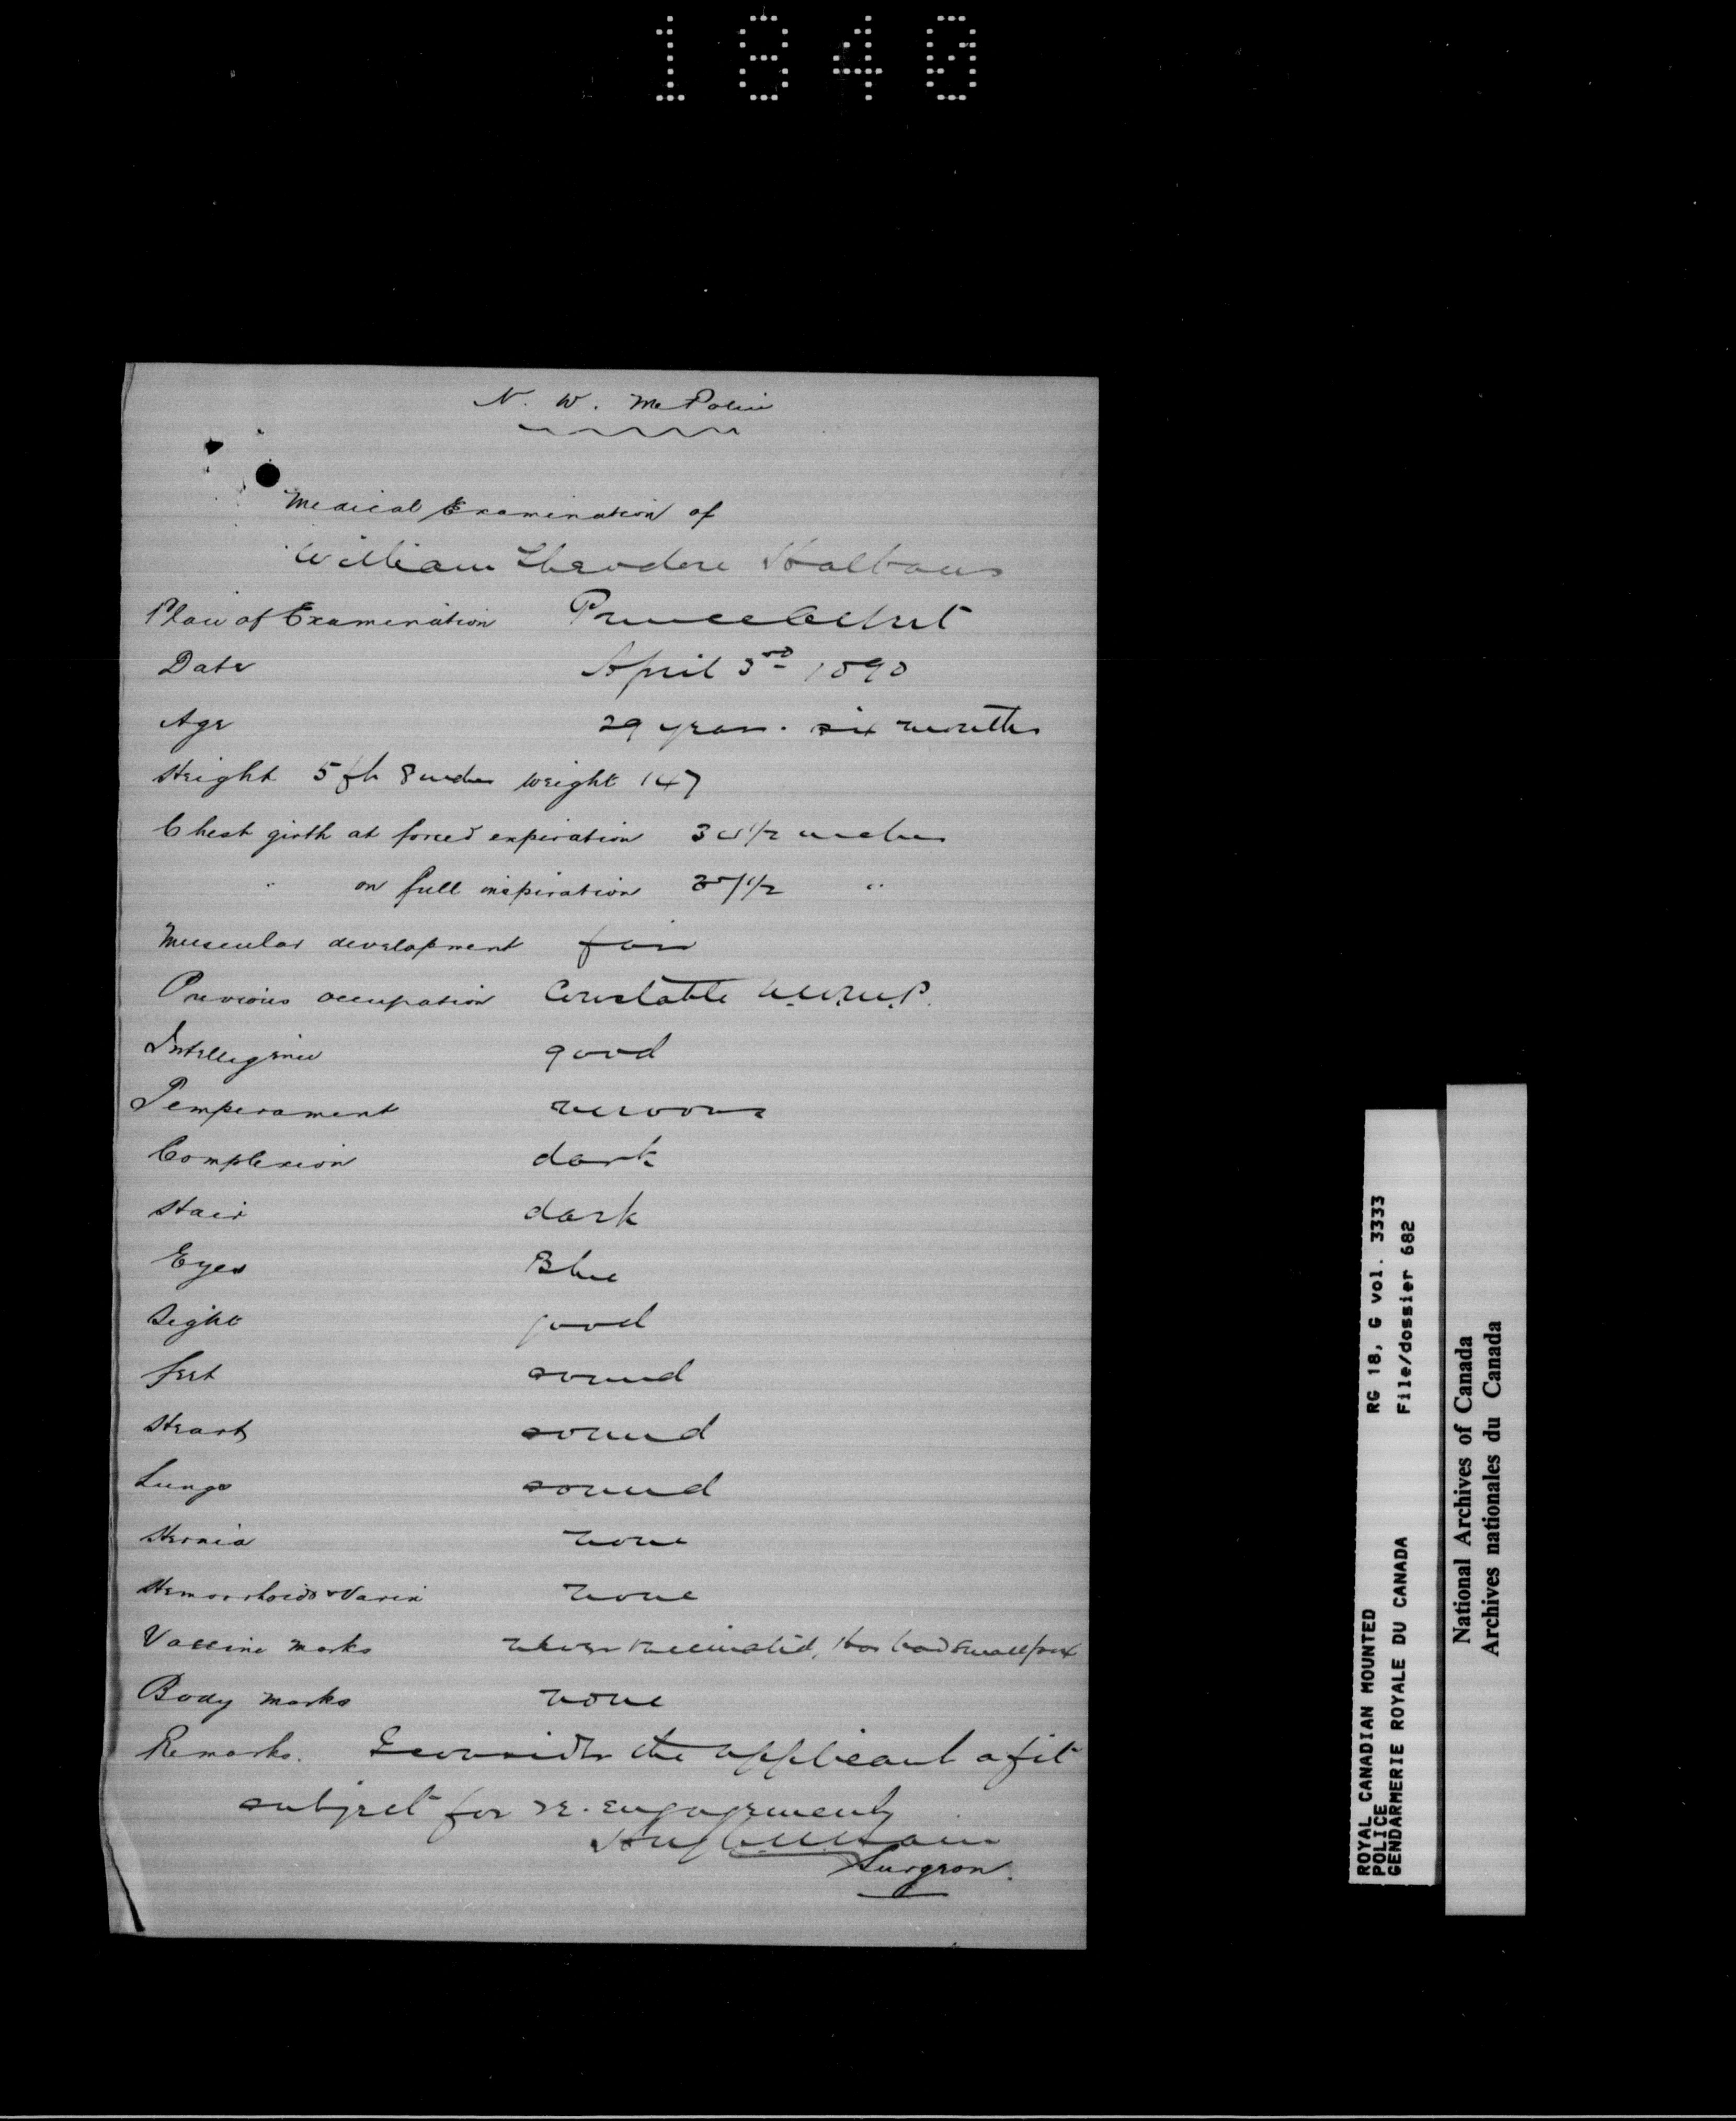 1840
N. W. M. Police
Medical Examination of
William Theodore Halbaus
Place of Examination Prince Albert
Date April 3rd 1890
Age 29 years. six months
Height 5 ft 8 inches weight 147
Chest girth at forced expiration 1/2 inches
" on full inspiration 1/2 "
Muscular development fair
Previous occupation Constable N.W.M.P.
Intelligence good
Temperament nervous
Complexion dark
Hair dark
Eyes Blue
Sight good
feet sound
Heart sound
Lungs sound
Hernia none
Hemorrhoids & Varix none
Vaccine marks never vaccinated, Has had smallpox
Body marks none
Remarks. I consider the applicant a fit
subject for re-engagement
Surgeon.
ROYAL CANADIAN MOUNTED RG 18, G vol. 3333
POLICE
GENDARMERIE ROYALE DU CANADA File/dossier 682
National Archives of Canada
Archives nationales du Canada